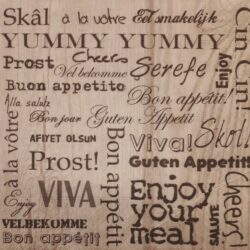 Skâl à la vôtre Eet smakelijk
YUMMY YUMMY
Cin Cin!
Prost Cheers
Vel bekomme Serefe
Enjoy
Buon appetito
Alla salute Bon appétit!
à la vôtre
Bon jour Guten Appetit
AFIYET OLSUN
Bon appétit
Viva! Skol!
Prost! Guten Appetit!
VIVA Enjoy
your
meal
Cheers
SALUTE
Enjoy
VELBEKOMME
Buon appetito